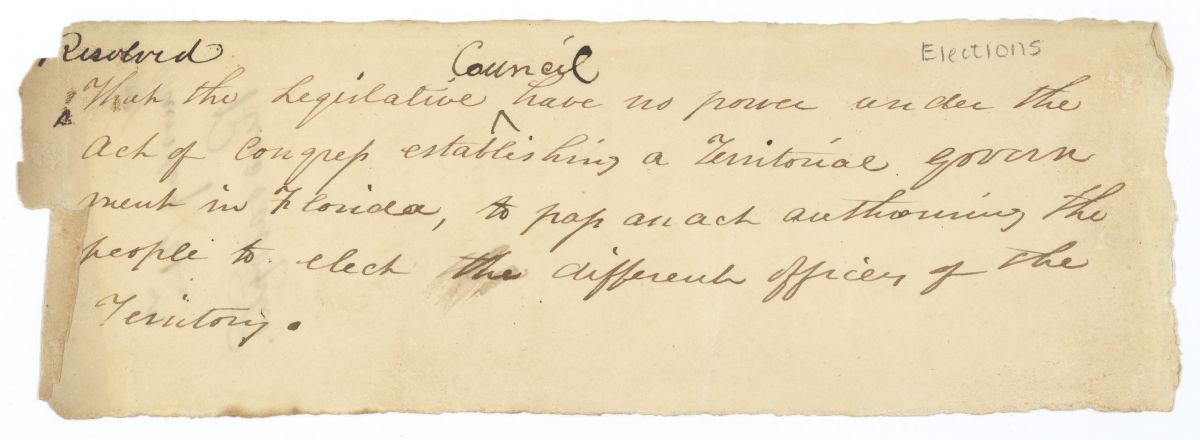 Resolved Council Elections
That the Legislative ^ have no power under the
Act of Congress establishing a Territorial govern
ment in Florida, to pass an act authorising the
people to elect the different officers of the
Territory.